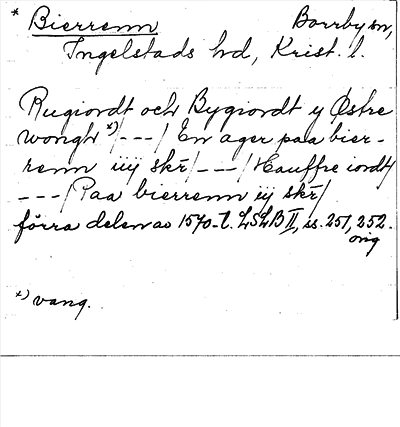 * Bierrenn Borrby sn,
Ingelstads hd, Krist. l.
Rugiordt och Bygiordt y Østre
wongh *)/---/ En ager paa bier-
renn iiij skr̄/---/ Hauffre iordt/
---/ Paa bierrenn iij skr̄/
förra delen av 1570-t. LSLB II, s. 251, 252.
orig
*) vang.